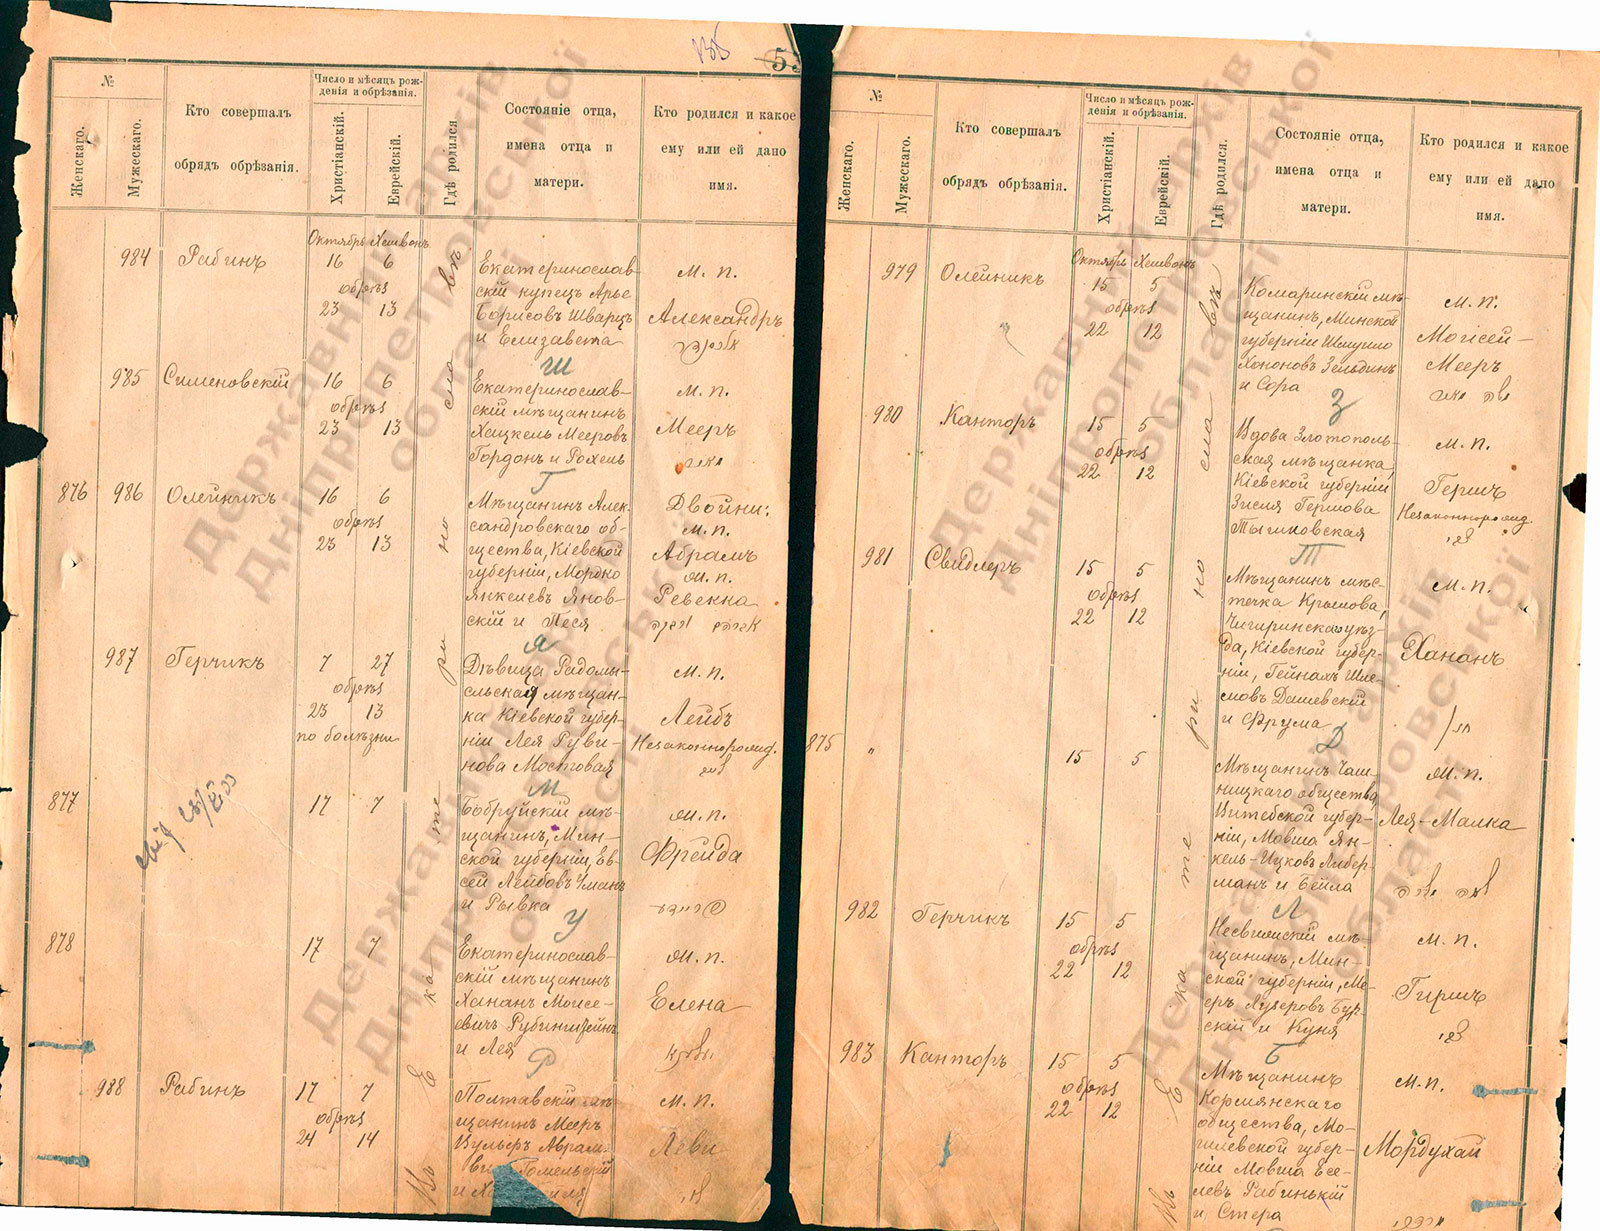 №
Женскаго.
Мужескаго.
Кто совершалъ
обрядъ обрѣзанія.
Число и мѣсяцъ рож-
денія и обрѣзанія.
Христіанскій.
Еврейскій.
Гдѣ родился
Состояніе отца,
имена отца и
матери.
Кто родился и какое
ему или ей дано
имя.
Въ Екатеринославѣ
Октябрь Хешвонъ
984 Рабинъ 16 6
обрѣз
23 13
Екатеринослав-
скій купецъ Арье
Борисовъ Шварцъ
и Елизавета
м. п.
Александръ
Ш
985 Сименовскій 16 6
обрѣз
23 13
Екатеринослав-
скій мѣщанинъ
Хацкель Мееровъ
Гордонъ и Рохель
м. п.
Мееръ
מאיר
Г
876 986 Олейникъ 16 6
обрѣз
23 13
Мѣщанинъ Алек-
сандровскаго об-
щества, Кіевской
губерніи, Мордко
Янкелевъ Янов-
скій и Песя
Двойни:
м. п.
Абрамъ
ж. п.
Ревекка
Я
987 Герчикъ 7 27
обрѣз
23 13
по болѣзни
Дѣвица Радомы-
сльская мѣщан-
ка Кіевской губер-
ніи Лея Руви-
нова Мостовая
м. п.
Лейбъ
Незаконнорожд.
לייב
М
877 17 7
Бобруйскій мѣ-
щанинъ, Мин-
ской губерніи, Ев-
сей Лейбовъ Уманъ
и Рывка
ж. п.
Фрейда
פריידא
У
878 17 7
Екатеринослав-
скій мѣщанинъ
Хананъ Моисе-
евичъ Рубинштейнъ
и Лея
ж. п.
Елена
Р
988 Рабинъ 17 7
обрѣз
24 14
Полтавскій мѣ-
щанинъ Мееръ
Вульеръ Аврам-
Гомельскій
м. п.
Леви
לוי
№
Женскаго.
Мужескаго.
Кто совершалъ
обрядъ обрѣзанія.
Число и мѣсяцъ рож-
денія и обрѣзанія.
Христіанскій.
Еврейскій.
Гдѣ родился.
Состояніе отца,
имена отца и
матери.
Кто родился и какое
ему или ей дано
имя.
Въ Екатеринославѣ
Октябрь Хешвонъ
979 Олейникъ 15 5
обрѣз
22 12
Комаринскій мѣ-
щанинъ, Минской
губерніи Шмуйло
Хононовъ Зельдинъ
и Сора
м. п.
Моисей-
Мееръ
З
980 Канторъ 15 5
обрѣз
22 12
Вдова Златополь-
ская мѣщанка,
Кіевской губерніи
Зисля Гершова
Тышковская
м. п.
Гершъ
Незаконнорожд.
הירש
Т
981 Свидлеръ 15 5
обрѣз
22 12
Мѣщанинъ мѣс-
течка Крылова,
Чигиринскаго уѣз-
да, Кіевской губер-
ніи, Гейнахъ Шле-
мовъ Дашевскій
и Фрума
м. п.
Хананъ
חנן
Д
875 " 15 5
Мѣщанинъ Чаш-
ницкаго общества,
Витебской губер-
ніи, Мовша Ян-
кель-Ицковъ Либер-
манъ и Бейла
ж. п.
Лея-Малка
Л
982 Герчикъ 15 5
обрѣз
22 12
Несвижскій мѣ-
щанинъ, Мин-
ской губерніи, Ме-
еръ Лузеровъ Бур-
скій и Куня
м. п.
Гиршъ
הירש
Б
983 Канторъ 15 5
обрѣз
22 12
Мѣщанинъ
Кормянскаго
общества, Мо-
гилевской губер-
ніи Мовша Есе-
левъ Рабинькій
и Стера
м. п.
Мордухай
מרדכי
Державний архів
Дніпропетровської
області